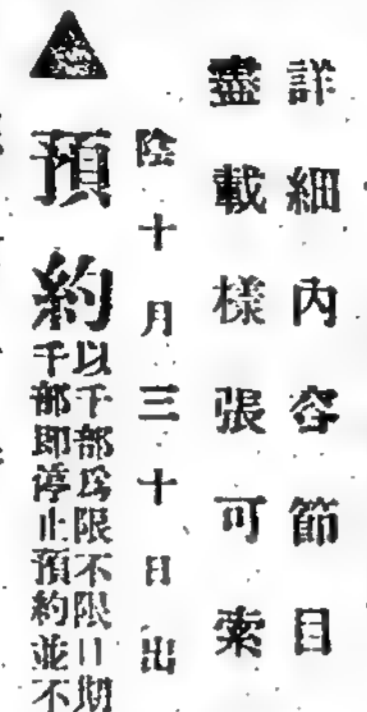 詳細內容節目
盡載樣張可索
陰十月三十日出
預約
以千部爲限不限日期
千部即停止預約並不